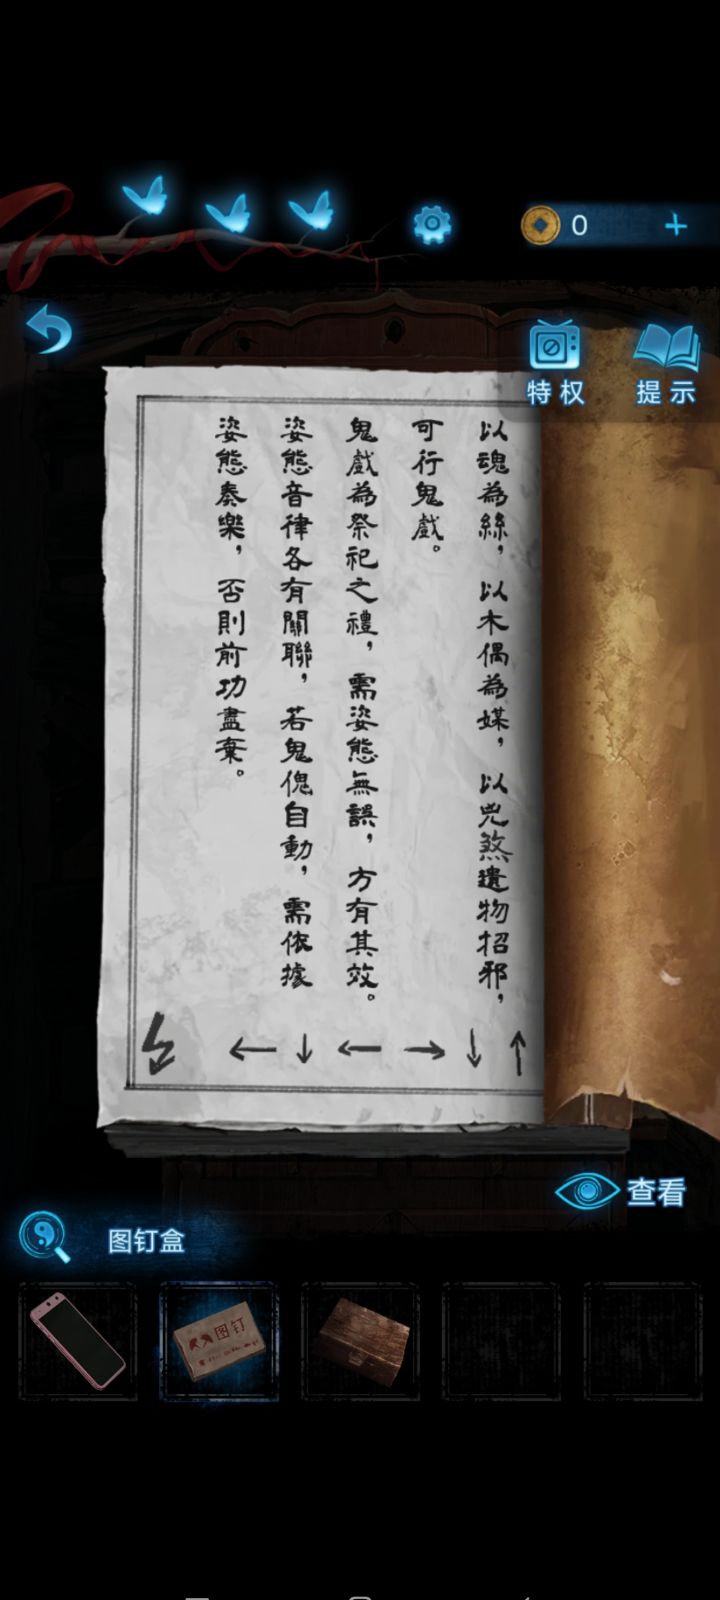 0
特权
提示
以魂為絲，以木偶為媒，以兇煞遺物招邪，
可行鬼戲。
鬼戲為祭祀之禮，需姿態無誤，方有其效。
姿態音律各有關聯，若鬼傀自動，需依據
姿態奏樂，否則前功盡棄。
↑↓→←↓←
查看
图钉盒
图钉